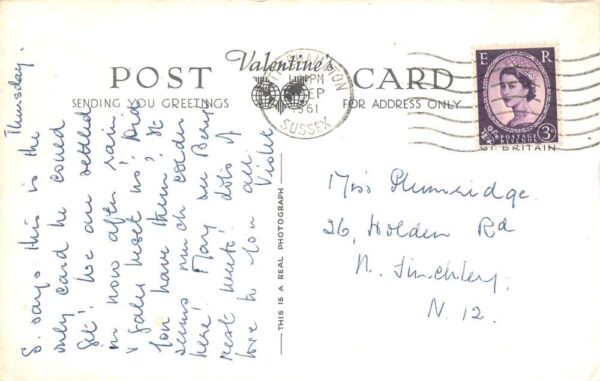 Valentine's
POST CARD
SENDING YOU GREETINGS
FOR ADDRESS ONLY
HAMPTON
PM
SEP
1961
SUSSEX
E R
POSTAGE
REVENUE
3D
GT. BRITAIN
THIS IS A REAL PHOTOGRAPH
Thursday.
S. says this is the
only card he could
get! We are settled
in now after rain
& gales beset us! Did
you have them? It
seems much colder
here! May see Bery
next week! Lots of
love to you all.
Violet
Miss Plumridge.
26, Holden Rd
N. Finchley.
N. 12.